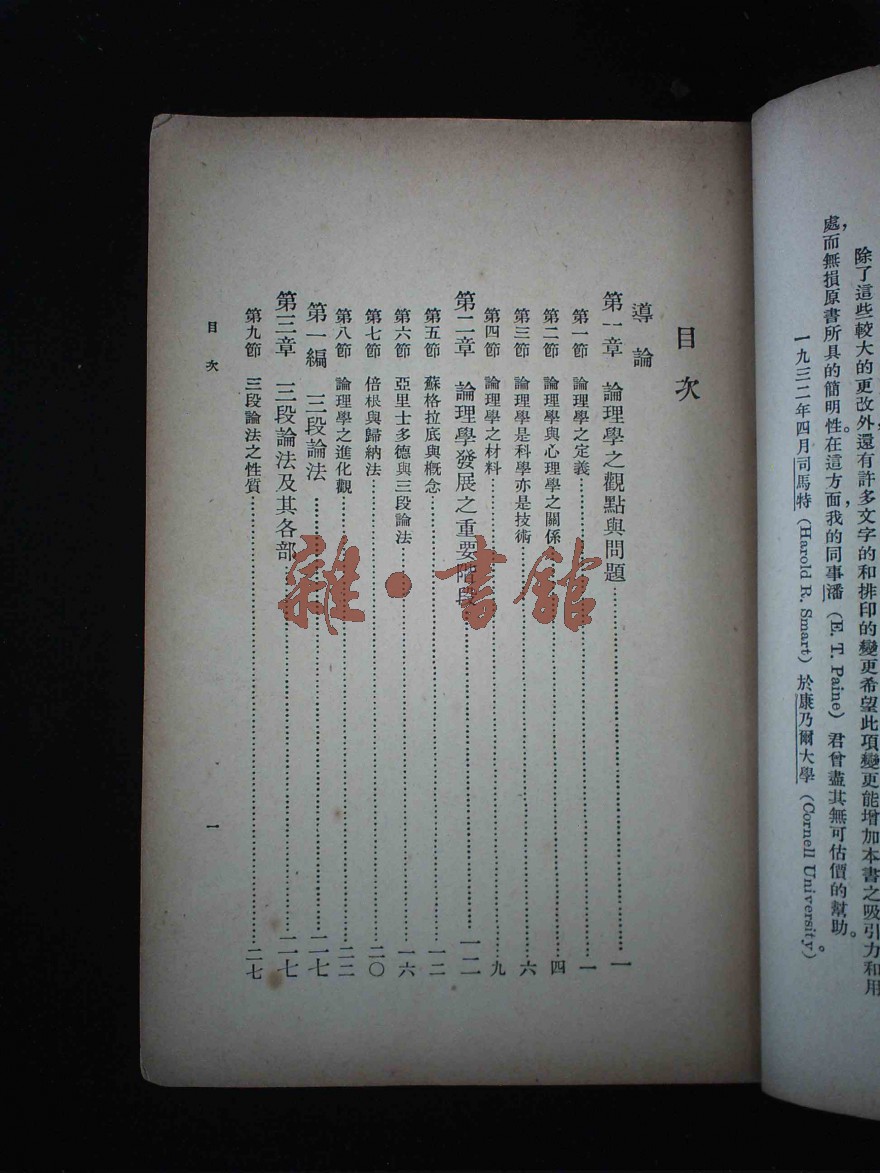 除了這些較大的更改外,還有許多文字的和排印的變更希望此項變更能增加本書之吸引力和用
處,而無損原書所具的簡明性。在這方面,我的同事潘(E. T. Paine)君曾盡其無可估價的幫助。
一九三二年四月司馬特(Harold R. Smart)於康乃爾大學(Cornell University)
目次
導論
第一章 論理學之觀點與問題……一
第一節 論理學之定義……一
第二節 論理學與心理學之關係……四
第三節 論理學是科學亦是技術……六
第四節 論理學之材料……九
第二章 論理學發展之重要階段……一二
第五節 蘇格拉底與概念……一二
第六節 亞里士多德與三段論法……一六
第七節 倍根與歸納法……二〇
第八節 論理學之進化觀……二二
第一編 三段論法……二七
第三章 三段論法及其各部……二七
第九節 三段論法之性質……二七
目次 一
雜·書館